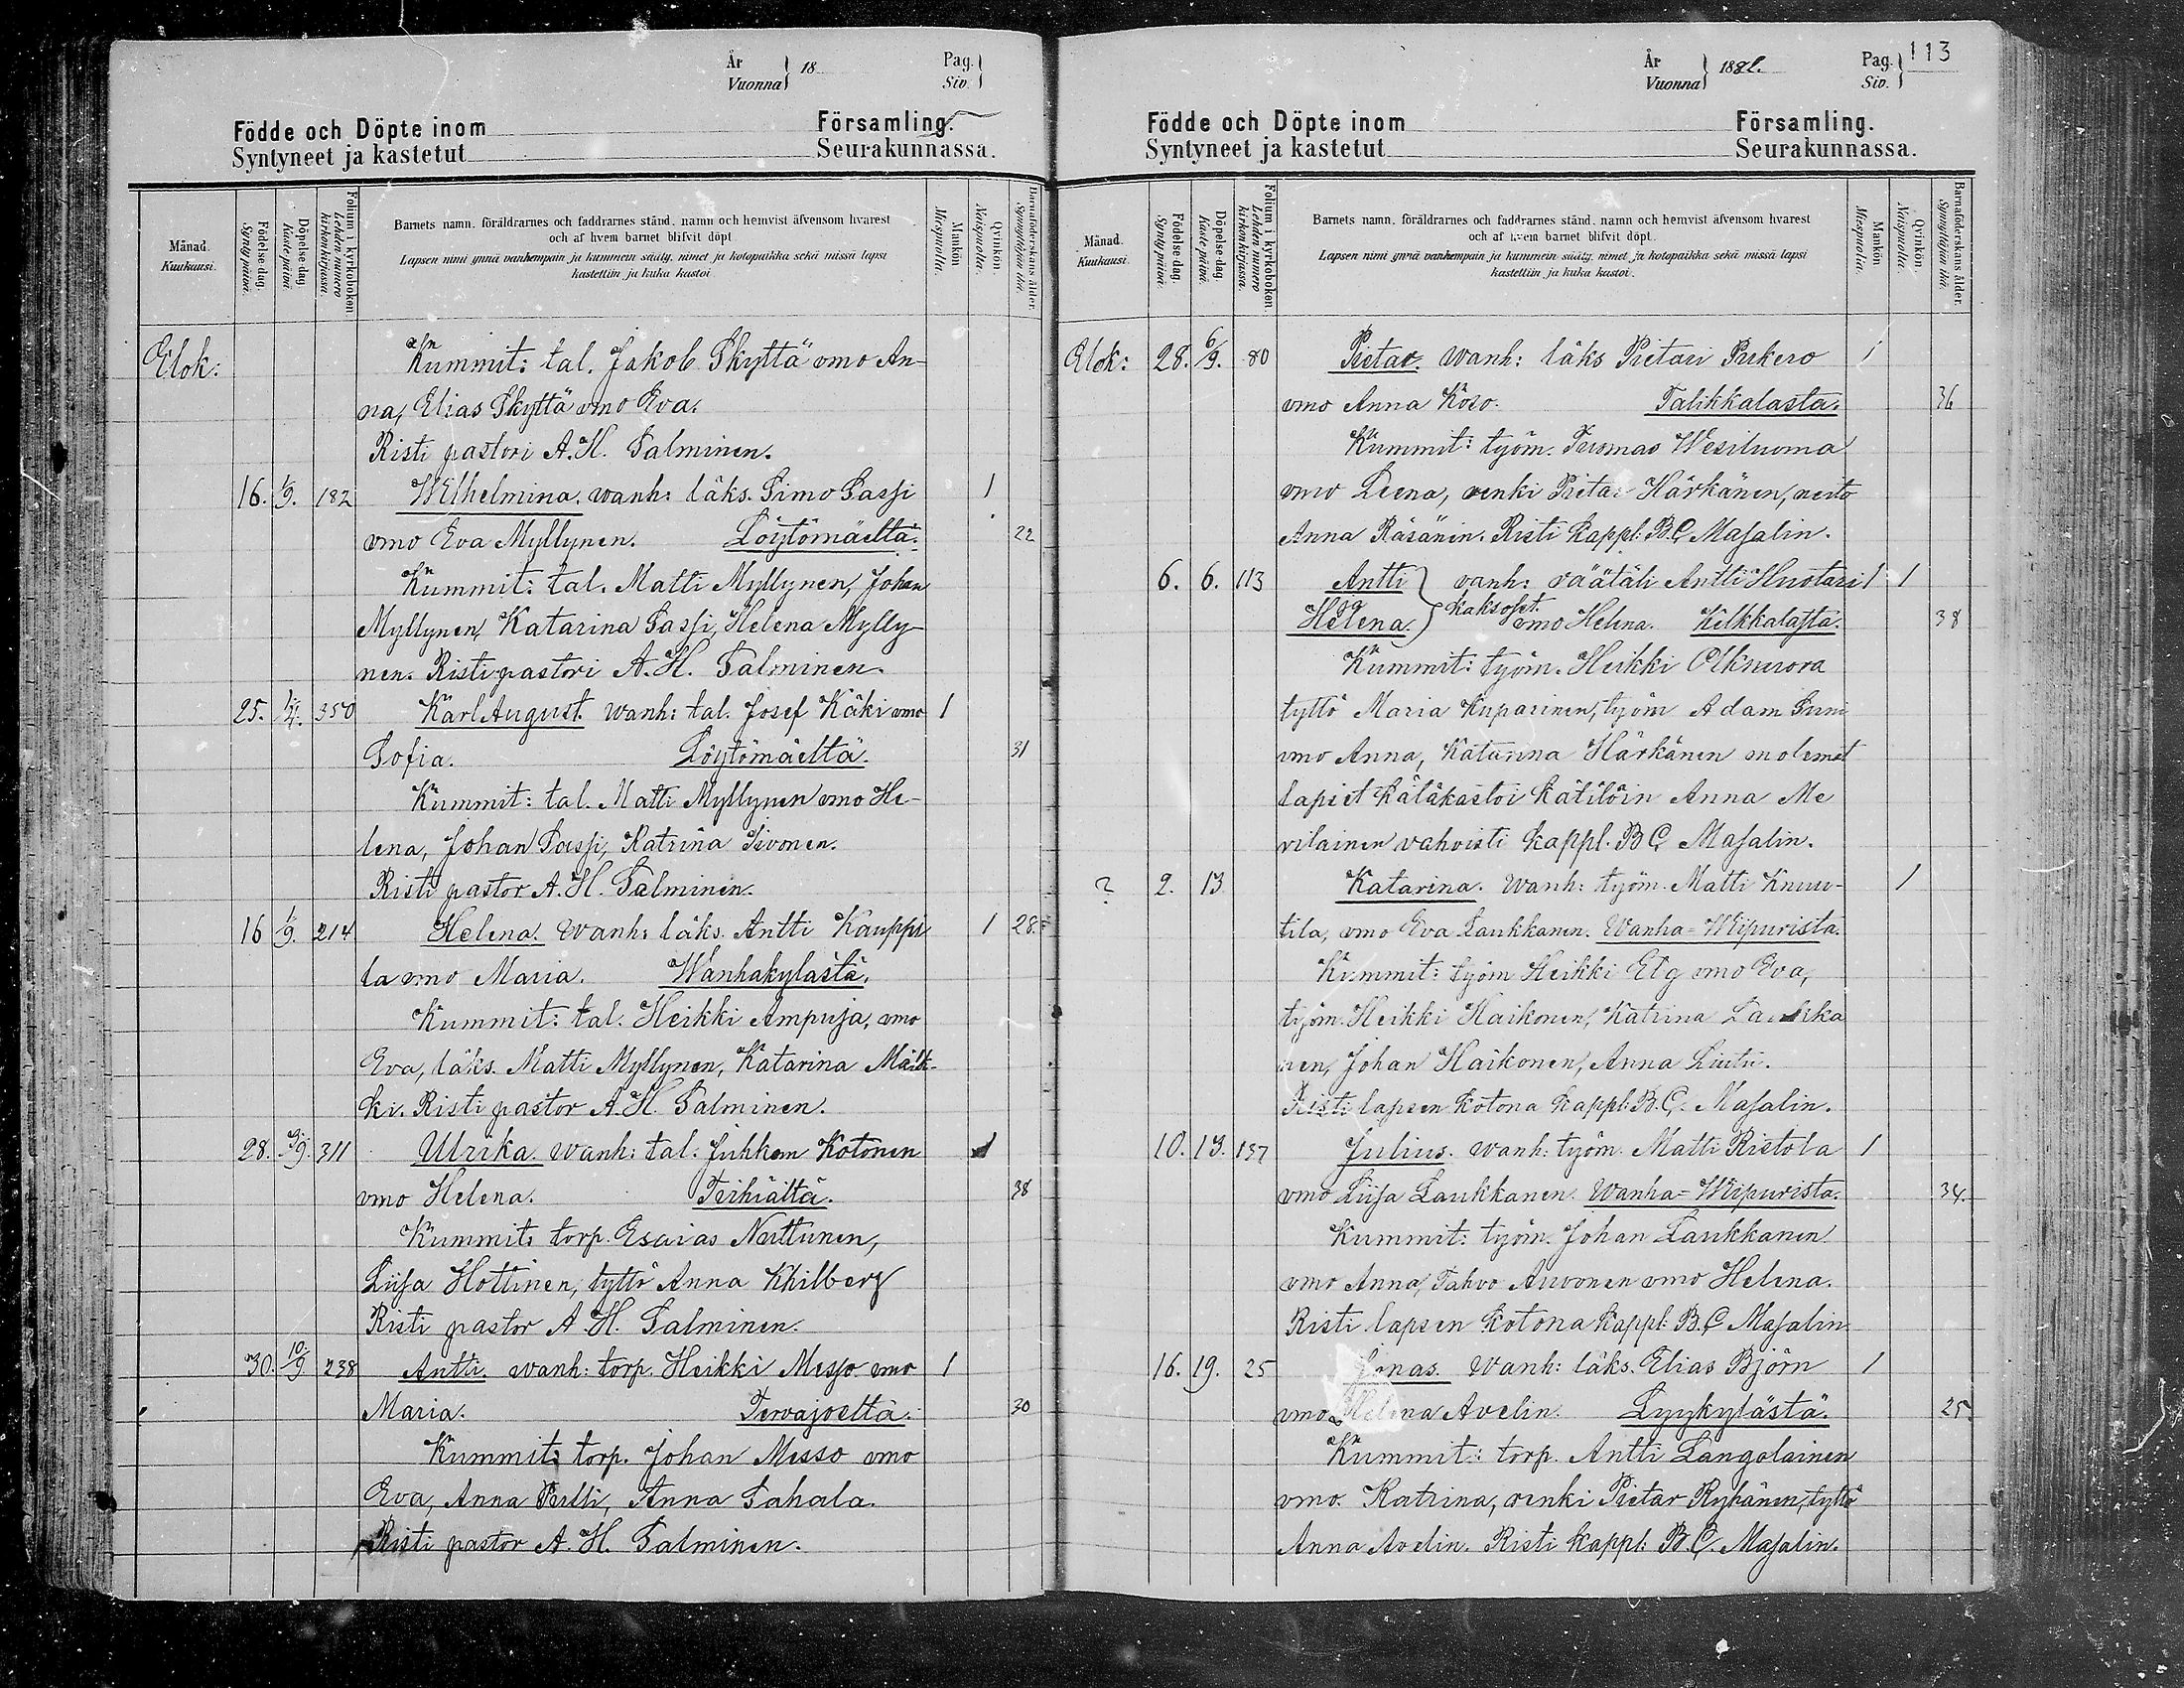 År
Vuonna
18
Pag.
Siv.
Födde och Döpte inom Församling.
Syntyneet ja kastetut Seurakunnassa.
Månad.
Kuukausi.
Födelse dag.
Synty päivä.
Döpelse dag
Kaste päivä
Folium i kyrkoboken
Lehden numero kirkon kirjassa.
Barnets namn, föräldrarnes och faddrarnes stånd, namn och hemvist äfvensom hvarest
och af hvem barnet blifvit döpt
Lapsen nimi ynnä vanhempain ja kummein sääty, nimet ja kotopaikka sekä missä lapsi
kastettiin ja kuka kastoi
Mankön
Miespuolia.
Qvinkön.
Naispuolia.
Barnaföderskans ålder.
Synnyttäjän ikä.
Elok: Kummit: tal. Jakob Skyttä vmo An-
na, Elias Skyttä vmo Eva.
Risti pastori A. H. Salminen.
16. 1/9. 182 Wilhelmina. wanh: läks. Simo Sassi 1
vmo Eva Myllynen. Löytömäeltä. 22
Kummit: tal. Matti Myllynen, Johan
Myllynen, Katarina Sassi, Helena Mylly-
nen. Risti pastori A. H. Salminen.
25. 350 Karl August. Wanh: tal. Josef Käki vmo 1
Sofia. Löytömäeltä. 31
Kummit: tal. Matti Myllynen vmo He-
lena, Johan Sassi, Katrina Sivonen.
Risti pastor A. H. Salminen.
16 1/9. 214 Helena. Wanh: läks. Antti Kauppi 1 28.
la vmo Maria. Wanhakylästä.
Kummit: tal. Heikki Ampuja, vmo
Eva, läks. Matti Myllynen, Katarina Mälk-
ki. Risti pastor A. H. Salminen.
28. 311 Ulrika. Wanh: tal. Juhkom Kotonen 1
vmo Helena. Terhiältä. 38
Kummit: torp. Esaias Neittunen,
Liisa Hottinen, tyttö Anna Khilberg
Risti pastor A. H. Salminen.
30. 10/9 238 Antti. wanh: torp. Heikki Messo vmo 1
Maria. Tervajoelta. 30
Kummit: torp. Johan Messo vmo
Eva, Anna Pertti, Anna Sahala.
Risti pastor A. H. Salminen.
År
Vuonna
1881.
Pag.
Siv.
113
Födde och Döpte inom Församling.
Syntyneet ja kastetut Seurakunnassa.
Månad.
Kuukausi.
Födelse dag.
Synty päivä.
Döpelse dag.
Kaste päivä.
Folium i kyrkoboken
Lehden numero kirkon kirjassa.
Barnets namn, föräldrarnes och faddrarnes stånd, namn och hemvist äfvensom hvarest
och af hvem barnet blifvit döpt.
Lapsen nimi ynnä vanhempain ja kummein sääty, nimet ja kotopaikka sekä missä lapsi
kastettiin ja kuka kastoi.
Mankön
Miespuolia.
Qvinkön.
Naispuolia.
Barnaföderskans ålder.
Synnyttäjän ikä.
Elok: 28. 6/9. 80 Pietar. wanh: läks Pietari Pukero 1
vmo Anna Koso. Talikkalasta. 36
Kummit: työm. Tuomas Wesiluoma
vmo Leena, renki Pietar Härkänen, neito
Anna Räsänin. Risti Kappl: B. C. Masalin.
6. 6. 113 Antti vanh: räätäli Antti Huotari 1 1
ja kaksoset.
Helena. vmo Helena. Kilkkalasta. 38
Kummit: työm. Heikki Olkinuora
tyttö Maria Kuparinen, työm Adam Suni
vmo Anna, Katarina Härkänen molemat
lapset hätäkastoi Kätilöin Anna Me
riläinen vahvisti kappl. B C. Masalin.
? 2. 13. Katarina. Wanh: työm. Matti Knuu- 1
tila, vmo Eva Laukkanen. Wanha-Wiipurista.
Kummit: työm Heikki Elg vmo Eva,
työm. Heikki Haikonen, Katrina Laukka
nen, Johan Haikonen, Anna Liutu.
Risti lapsen kotona kappl: B. C. Masalin.
10. 13. 137 Julius. wanh: työm. Matti Ristola 1
vmo Liisa Laukkanen. Wanha-Wiipurista. 34.
Kummit: työm. Johan Laukkanen
vmo Anna, Tahvo Auvonen vmo Helena.
Risti lapsen kotona kappl: B. C. Masalin
16. 19. 25 Jonas. Wanh: läks. Elias Björn 1
vmo Helena Avelin. Lyykylästä. 25
Kummit: torp. Antti Langolainen
vmo. Katrina, renki Pietar Ryhänen, tyttö
Anna Avelin. Risti kappl: B. C. Masalin.